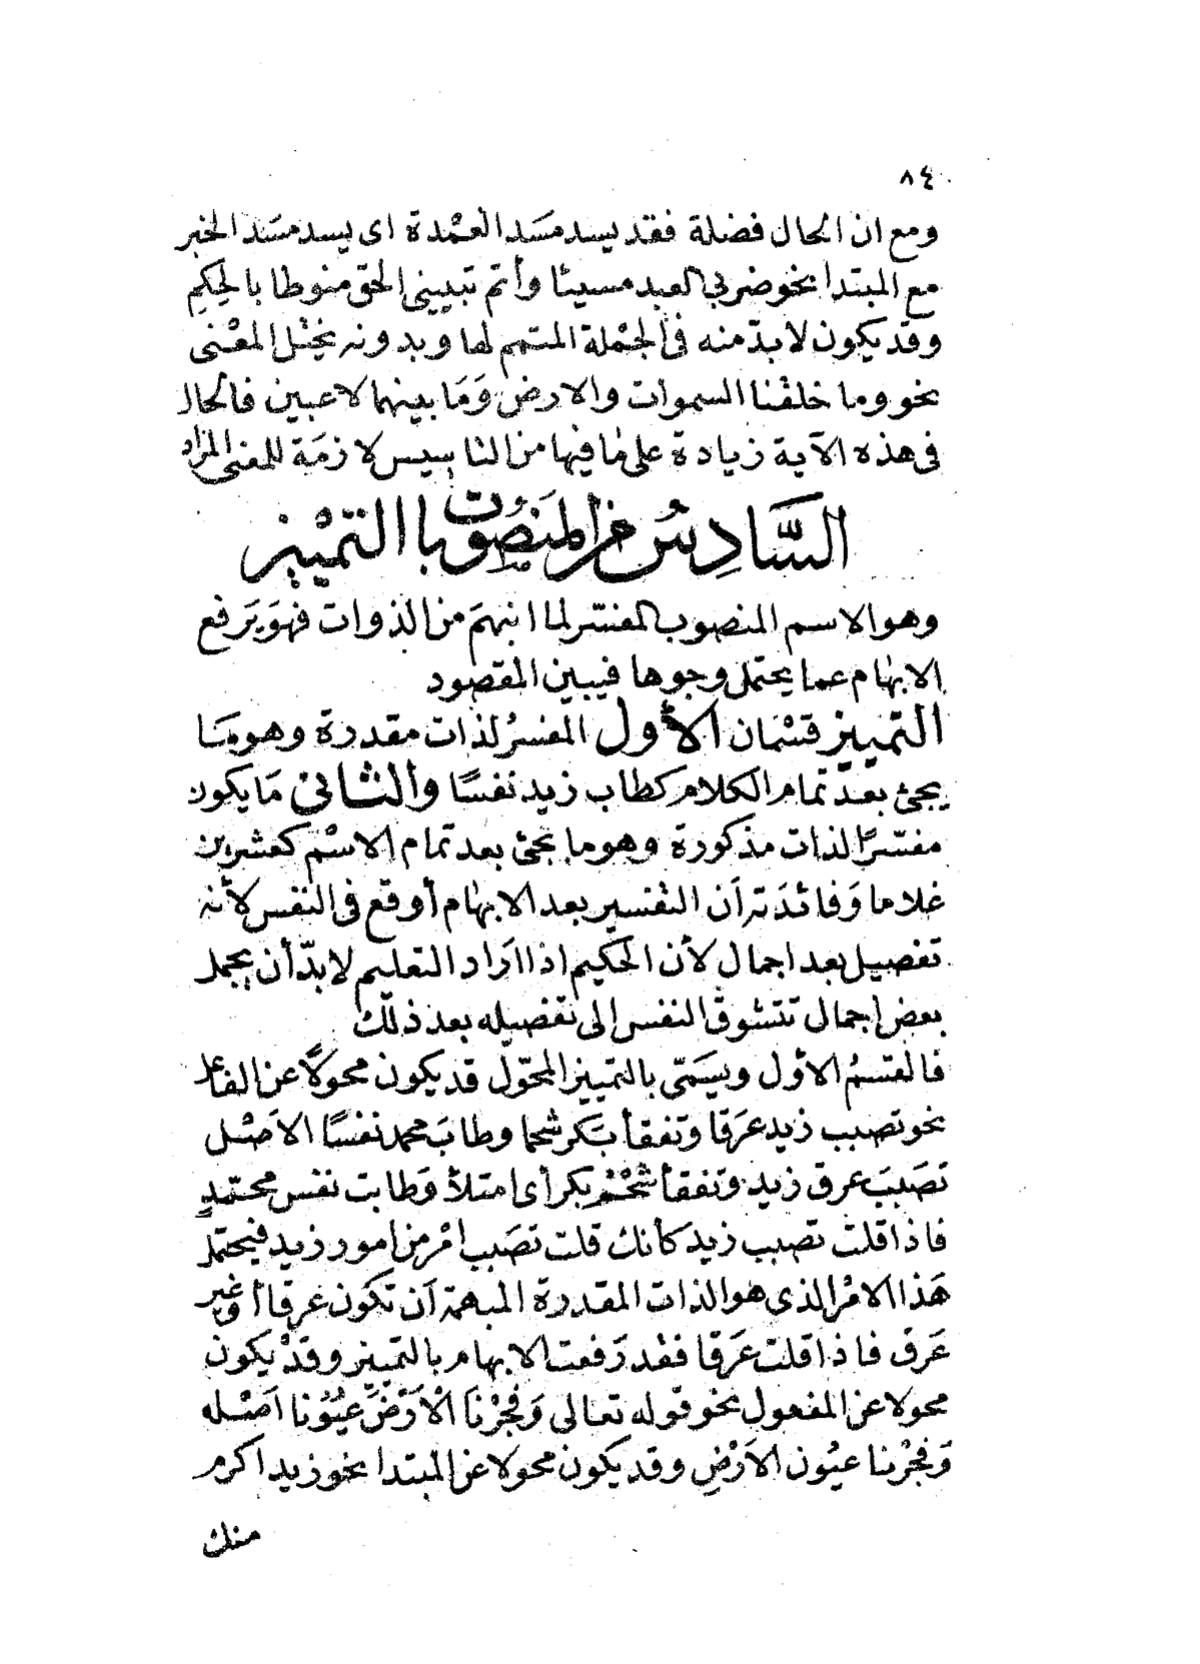 ٨٤
ومع ان الحال فضلة فقد يسد مسَد العمْدة اى يسد مسَد الخبر
مع المبتدا نحو ضربى العبد مسيئا وأتم تبيينى الحق منوطا بالحِكمِ
وقد يكون لا بدّ منه فى الجمْلة المتمم لها وبدونه يختل المعْنى
نحو وما خلقنا السموات والارض وَمَا بينهما لاعبين فالحال
فى هذه الآية زيادة على ما فيها من التاسيس لازمَة للمعنى المراد
السَّادِسُ من المَنصُوبات التمْييز
وهو الاسم المنصوب المفسّر لما انبهمَ من الذوات فهوَ يَرفع
الابهام عما يحتمل وجوها فيبين المقصود
التمييز قسْمان الأول المفسرُ لذات مقدرة وهو مَا
يجئ بعدَ تمام الكلام كطاب زيد نفسًا والثانى مَا يكون
مفسّرًا لذات مذكورة وهو ما يجئ بعد تمام الاسْم كعشرين
غلاما وَفائدَته أن التفسير بعد الابهام أوقع فى النفس لأنه
تفصيل بعد اجمال لأن الحكيم اذا اراد التعليم لا بدّ أن يجمل
بعض اجمال تتشوق النفس الى تفصيله بعد ذلك
فالقسمُ الأول ويسَمّى بالتمييز المحوّل قد يكون محولًا عن الفاعل
نحو تصبب زيد عَرَقا وتفقأ بَكر شحما وطابَ محمد نفسًا الاصْل
تصَبَبَ عرق زيد وتفقأ شحْم بكر أى امتلأ وَطابت نفس محمّدٍ
فاذا قلتَ تصبب زيد كأنك قلت تصَبب امْر من امور زيد فيحتمل
هَذا الامْر الذى هو الذات المقدرة المبهمة أن تكون عرقا أو غير
عَرَق فاذا قلت عَرَقا فقد رَفعت الابهام بالتمييز وقدْ يكون
محولا عن المفعول نحو قوله تعالى وَفجّرْنَا الْأَرْضَ عُيُوْنا اصْله
وَفجّرْنا عيُون الأَرْضِ وقد يكون محولا عن المبتدا نحو زيد اكرم
منك